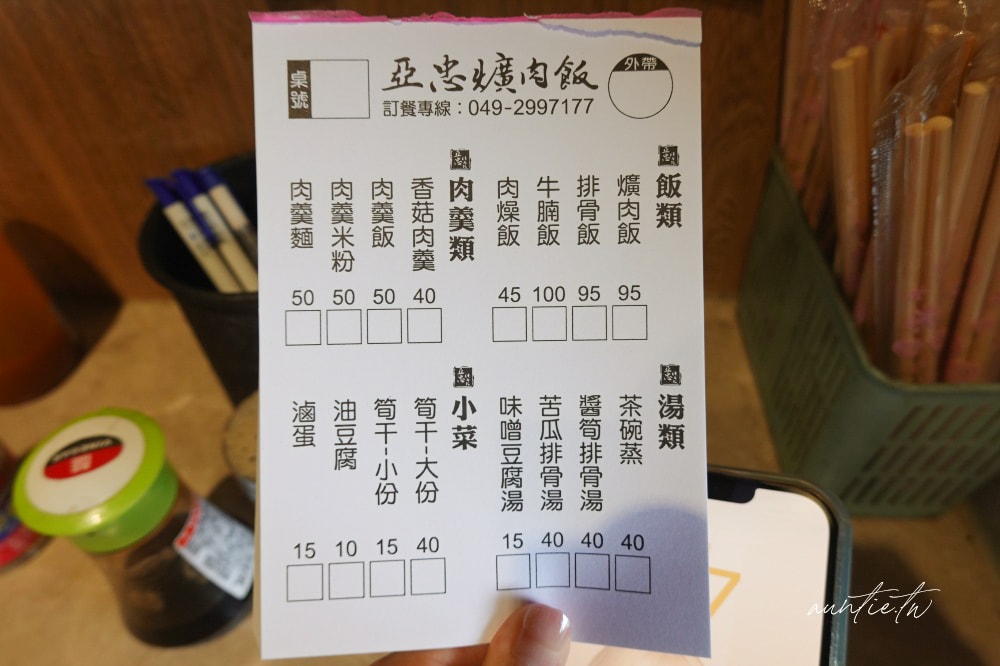 桌號
亞忠爌肉飯
外帶
訂餐專線：049-2997177
飯類
爌肉飯 95
排骨飯 95
牛腩飯 100
肉燥飯 45
肉羹類
香菇肉羹 40
肉羹飯 50
肉羹米粉 50
肉羹麵 50
湯類
茶碗蒸 40
醬筍排骨湯 40
苦瓜排骨湯 40
味噌豆腐湯 15
小菜
筍干-大份 40
筍干-小份 15
油豆腐 10
滷蛋 15
auntie.tw